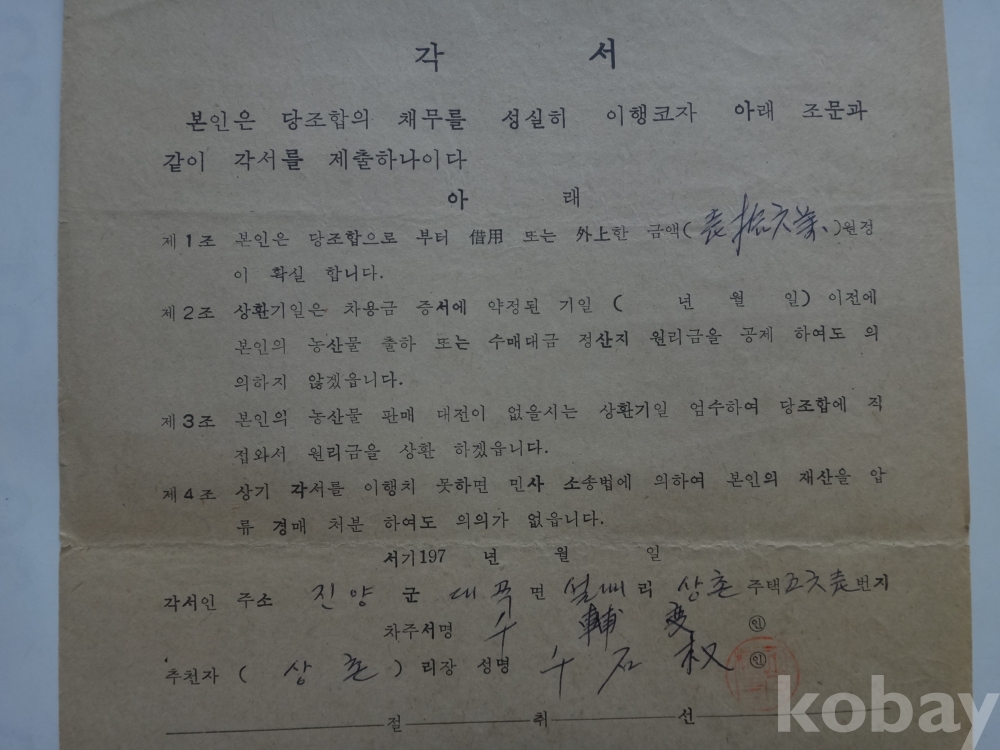 각 서
본인은 당조합의 채무를 성실히 이행코자 아래 조문과
같이 각서를 제출하나이다
아 래
제1조 본인은 당조합으로 부터 借用 또는 外上한 금액(壱拾六萬)월정
이 확실 합니다.
제2조 상환기일은 차용금 증서에 약정된 기일 ( 년 월 일) 이전에
본인의 농산물 출하 또는 수매대금 정산지 원리금을 공제 하여도 의
의하지 않겠읍니다.
제3조 본인의 농산물 판매 대전이 없을시는 상환기일 엄수하여 당조합에 직
접와서 원리금을 상환 하겠읍니다.
제4조 상기 각서를 이행치 못하면 민사 소송법에 의하여 본인의 재산을 압
류 경매 처분 하여도 의의가 없읍니다.
서기197 년 월 일
각서인 주소 진양 군 대곡 면 설매 리 상촌 주택 五六壱 번지
차주서명 輔 ㊞
추천자 ( 상촌 ) 리장 성명 石 权 ㊞
절 취 선
kobay